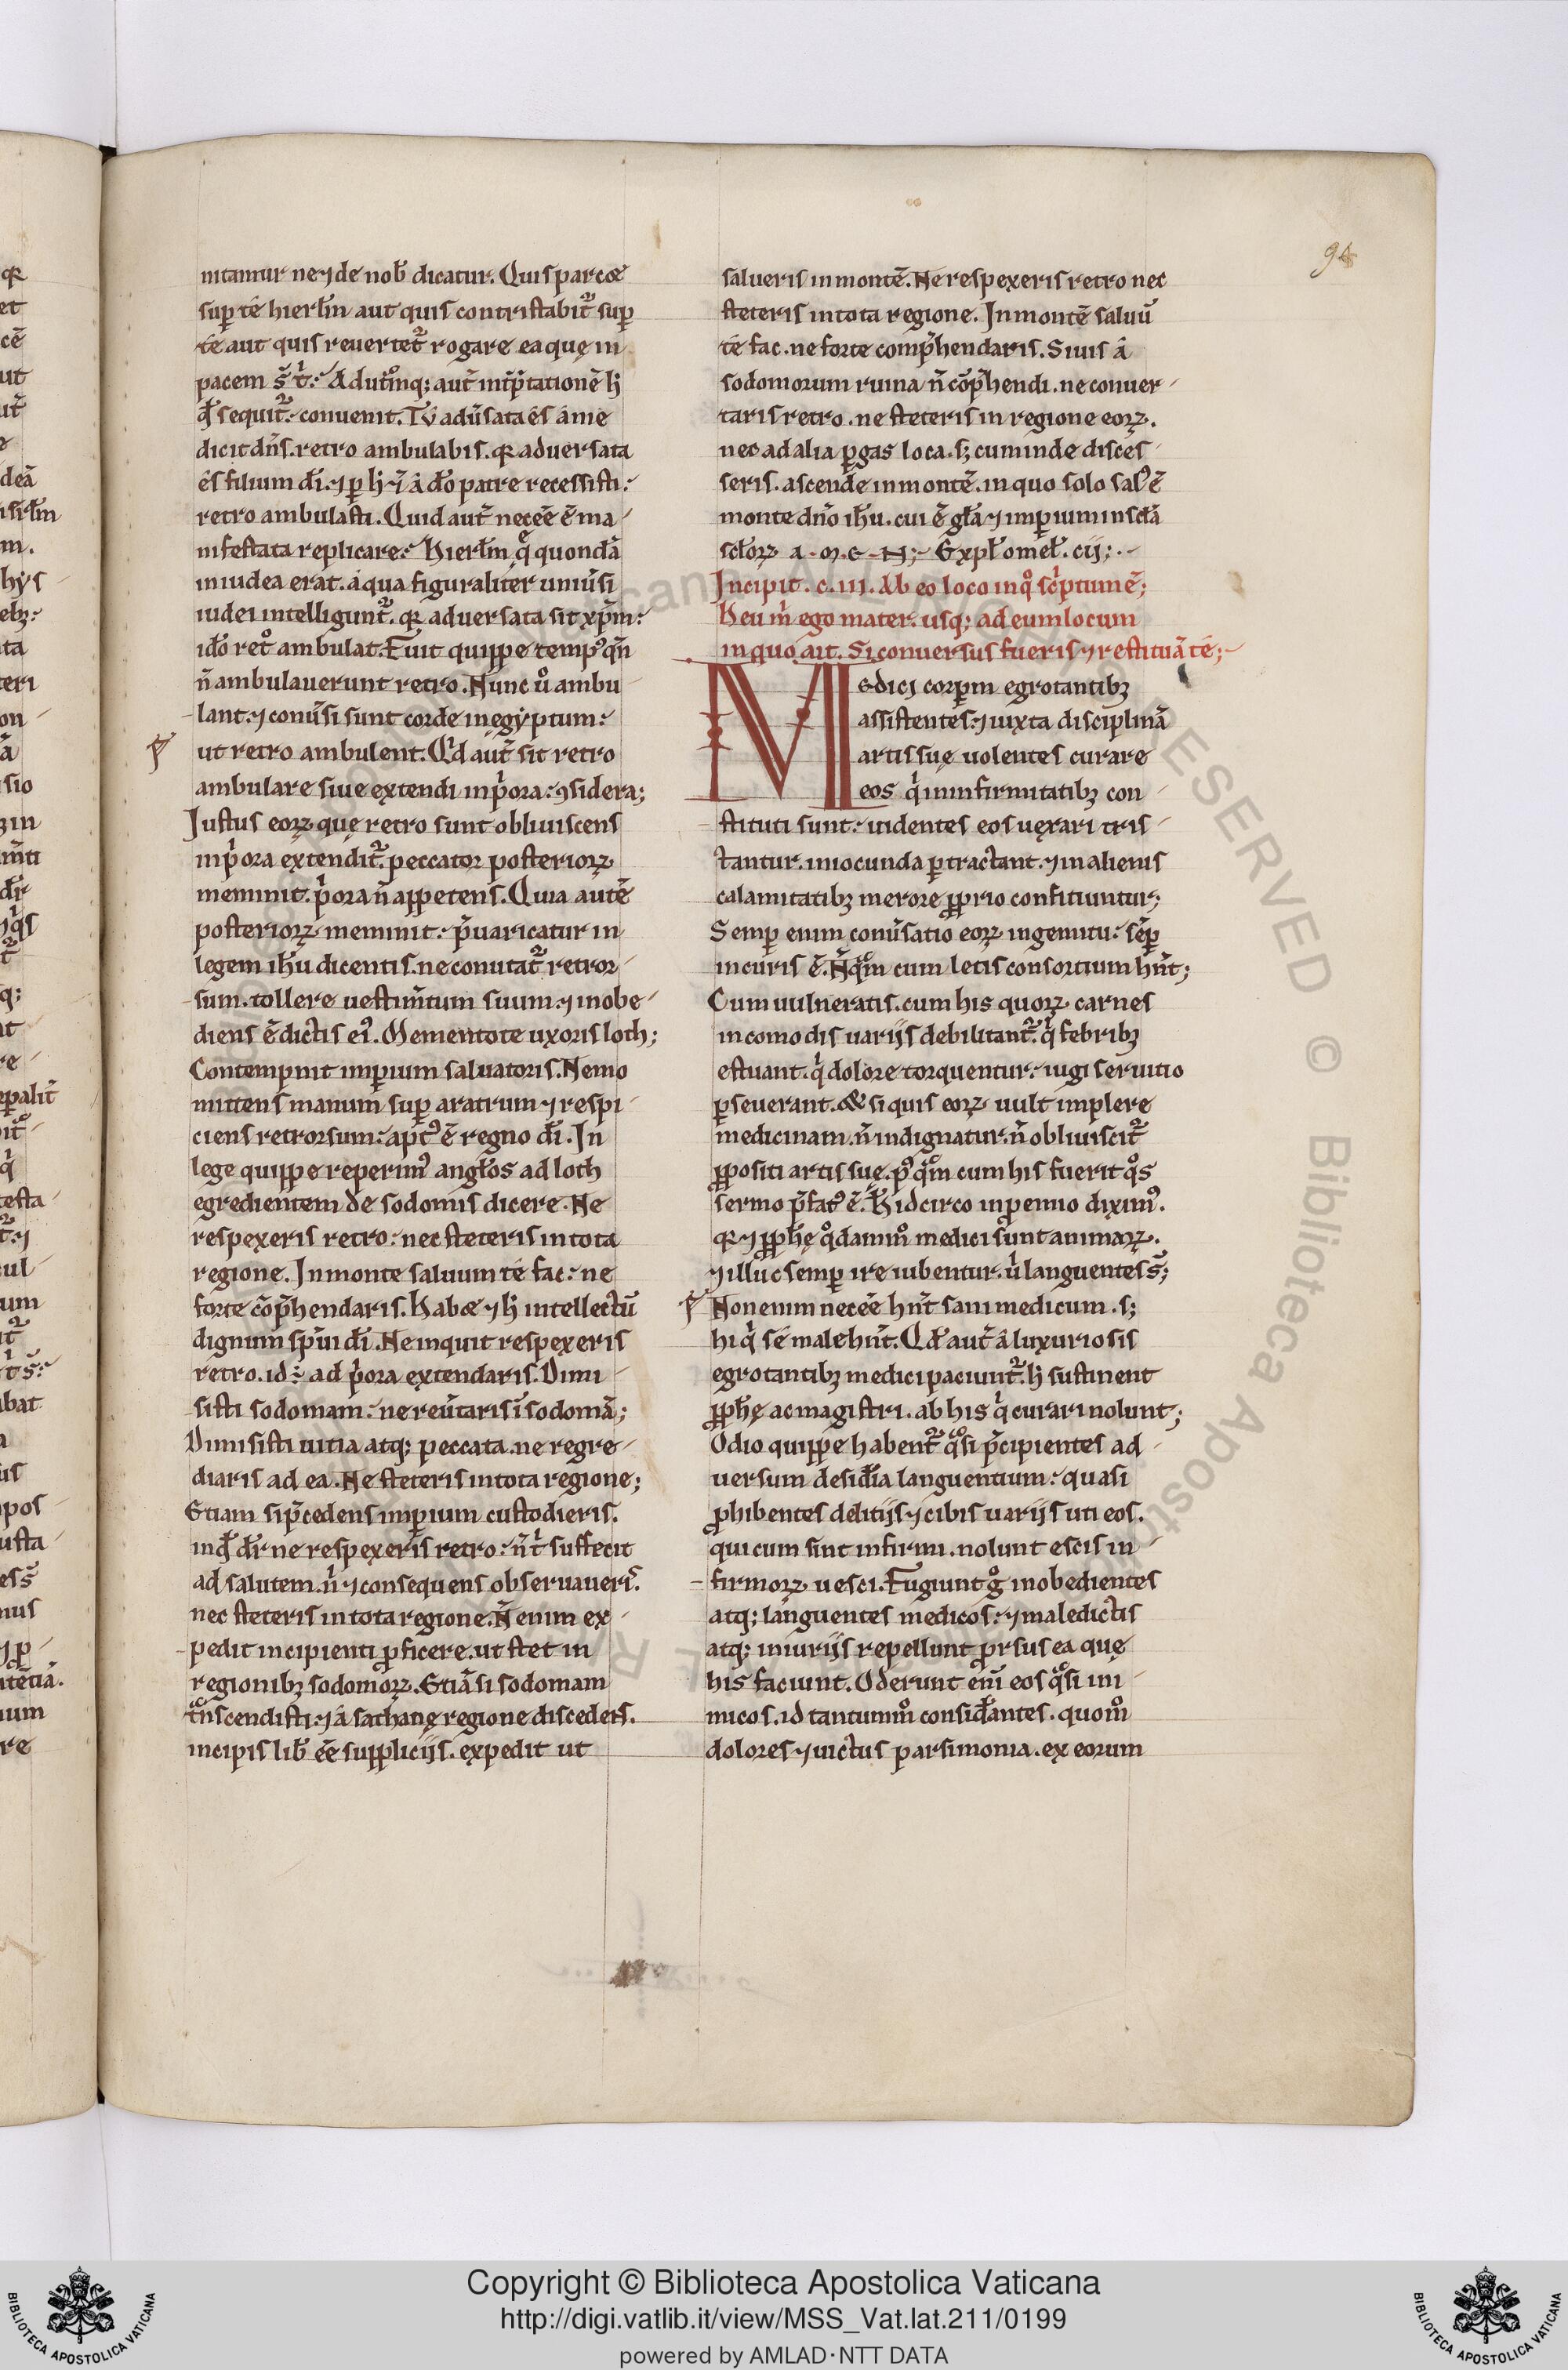 94
nitamur ne ⁊ de nob̄ dicatur. Quis parcæ
sup̱ té hierl̄m aut quis contristabit᷑ sup̱
té aut quis reuertet᷑ rogare ea quę in
dicit dn̄s. retro ambulabis. q̄ aduersata
és filium dī. ⁊ p̱ ħ ⁊ á dō patre recessisti:
retro ambulasti. Quid aut̄ neceē ē ma-
nifestata replicare: Hierl̄m q̄ quondā
in iudea erat. á qua figuraliter uniūsi
iudei intelligunt᷑. q̄ aduersata sit xp̄m:
idō ret° ambulat. Fuit quippe temp᷒ qn̄
n̄ ambulauerunt retro. Nunc ū ambu-
lant. ⁊ conūsi sunt corde in egyptum:
ut retro ambulent. Qd aut̄ sit retro
ambulare siue extendi in p̄ora: ꝯsidera;
Justus eoꝝ que retro sunt obliuiscens
in p̄ora extendit᷑. peccator posterioꝝ
meminit. p̄ora n̄ appetens. Quia autē
posterioꝝ meminit: p̄uaricatur in
legem ih̄u dicentis. ne conutat᷑ retror-
sum. tollere uestim̄tum suum. ⁊ inobe-
diens ē dictis ei᷒. Mementote uxoris loth;
Contempnit imp̱ium saluatoris. Nemo
mittens manum sup̱ aratrum ⁊ respi-
ciens retrorsum: apt᷒ ē regno dī. In
lege quippe reperim᷒ angl̄os ad loth
egredientem de sodomis dicere. Ne
respexeris retro: nec steteris in tota
regione. In monte saluum té fac: ne
forte cōp̄hendaris. Habæ ⁊ ħ intellectū
dignum sp̄ui dī. Ne inquit respexeris
retro. id ÷ ad p̄ora extendaris. Dimi-
sisti sodomam: ne reūtaris ī sodomā;
Dimisisti uitia atq; peccata. ne regre-
diaris ad ea. Ne steteris in tota regione;
Etiam si p̄cedens imp̱ium custodieris.
in qđ dr̄ ne respexeris retro: n̄ t̄ suffecit
ad salutem. n̄ ⁊ consequens obseruaueris.
nec steteris in tota regione. N̄ enim ex-
pedit incipienti ꝓficere. ut stet in
regionibꝫ sodomoꝝ. Etiā si sodomam
tn̄scendisti. ⁊ á sathanę regione discedens.
incipis lib̄ eē suppliciis. expedit ut
salueris in montē. Ne respexeris retro nec
steteris in tota regione. In montē saluū
té fac. ne forte comp̄hendaris. Si uis á
sodomorum ruina n̄ cōp̄hendi. ne conuer-
taris retro. ne steteris in regione eoꝝ.
nec ad alia p̱gas loca. s; cum inde disces-
seris. ascende in montē. in quo solo sal᷒ ē
monte dn̄o ih̄u. cui ē gl̄a ⁊ imp̱ium in sc̄la
sc̄loꝝ A·M·E·N;- Expl̄ omel̄. cij;·-
Incipit. c. III. Ab eo loco in q° sc̄ptum ē;
Heu m̄ ego mater. usq; ad eum locum
in quo ait. Si conuersus fueris ⁊ restituā té;-
Medici corp̱m egrotantibꝫ
assistentes. ⁊ iuxta disciplinā
artis sue uolentes curare
eos q̄ in infirmitatibꝫ con-
stituti sunt: uidentes eos uexari tris-
tantur. iniocunda p̱tractant. ⁊ in alienis
calamitatibꝫ merore ꝓprio conficiuntur;
Semp̱ enim conūsatio eoꝝ in gemitu: sēp̱
in curis ē. Nūq°m cum letis consortium hn̄t;
Cum uulneratis. cum his quoꝝ carnes
incomodis uariis debilitant᷑. q̄ febribꝫ
estuant. q̄ dolore torquentur: iugi seruitio
p̱seuerant. & si quis eoꝝ uult implere
medicinam. n̄ indignatur. n̄ obliuiscit᷑
ꝓpositi artis sue. p᷒ q°m cum his fuerit q°s
sermo p̄fat᷒ ē. H idcirco in ꝓemio dixim᷒.
q̄ ⁊ ꝓph̄ę q°dammº medici sunt animaꝝ.
⁊ illuc semp̱ ire iubentur. ū languentes s̄;
Non enim neceē hn̄t sani medicum. s;
hi q̄ sé male hn̄t. Qđ aut̄ á luxuriosis
egrotantibꝫ medici paciunt᷑. ħ sustinent
ꝓph̄ę ac magistri. ab his q̄ curari nolunt;
Odio quippe habent᷑ q°si p̄cipientes ad-
uersum desid̄ia languentium: quasi
ꝓhibentes delitiis ⁊ cibis uariis uti eos.
qui cum sint infirmi. nolunt escis in-
firmoꝝ uesci. Fugiunt g° inobedientes
atq; languentes medicos: ⁊ maledictis
atq; iniuriis repellunt ꝓrsus ea que
his faciunt. Oderunt enī eos q°si ini-
micos. id tantummº consid̄antes. quomº
dolores ⁊ uictus parsimonia. ex eorum
Copyright © Biblioteca Apostolica Vaticana
http://digi.vatlib.it/view/MSS_Vat.lat.211/0199
powered by AMLAD·NTT DATA
BIBLIOTECA APOSTOLICA VATICANA
BIBLIOTECA APOSTOLICA VATICANA